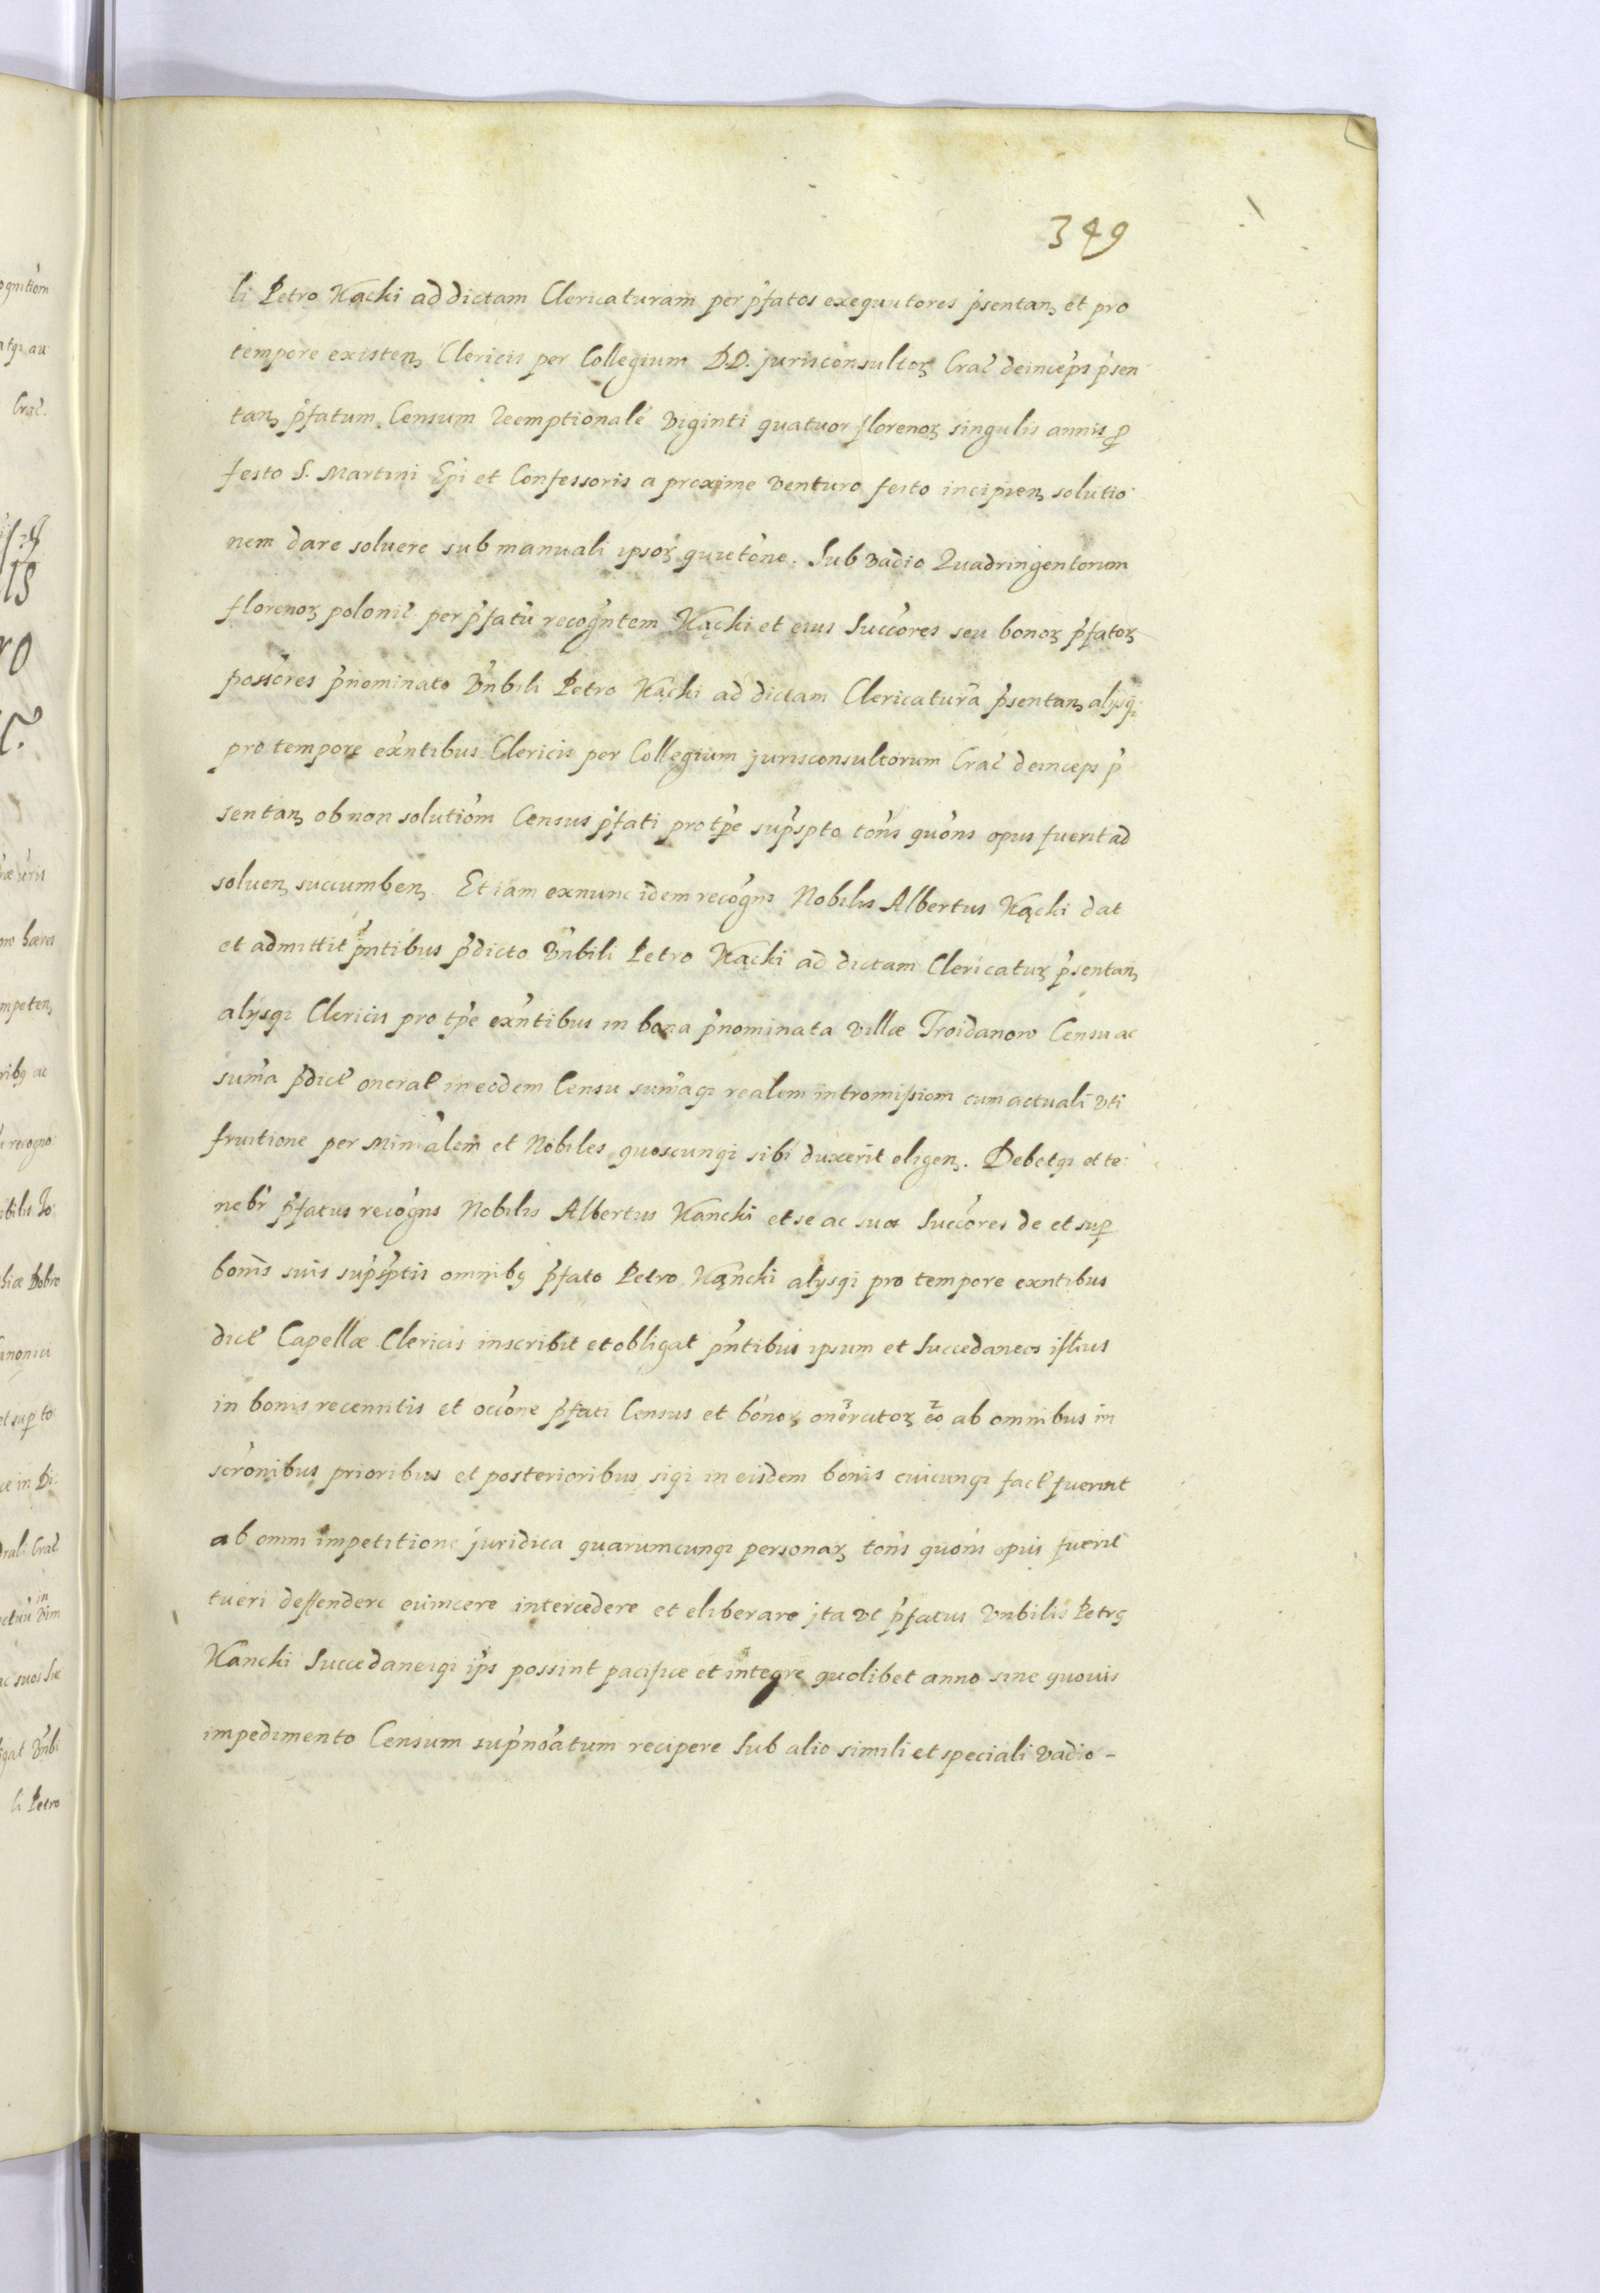 349
li Petro Kącki ad dictam Clericaturam per p̃fatos exequutores p̃sentanꝫ et pro
tempore existenꝫ Clericis per Collegium DD. jurisconsultorꝫ Crac̃ deinceps p̃sen
tanꝫ p̃fatum Censum Reemptionalẽ Viginti quatuor florenorꝫ singulis annis ꝓ
festo S. Martini Ep̃i et Confessoris a proxime venturo festo incipienꝫ solutio
nem dare soluere sub manuali ipsorꝫ quietõne. Sub vadio Quadringentorum
florenorꝫ polonic̃ per p̃fatũ recogñtem Kącki et eius Succ̃ores seu bonorꝫ p̃fatorꝫ
possõres p̃nominato Vñbili Petro Kącki ad dictam Clericaturã p̃sentanꝫ alijsqꝫ
pro tempore exñtibus Clericis per Collegium jurisconsultorum Crac̃ deinceps p̃
sentanꝫ ob non solutiom̃ Census p̃fati pro tp̃e sup̃spto tõns quõns opus fuerit ad
soluenꝫ succumbenꝫ. Et iam exnunc idem recogñs Nobilis Albertus Kącki dat
et admittit p̃ntibus p̃dicto Vñbili Petro Kącki ad dictam Clericaturꝫ p̃sentanꝫ
alijsqꝫ Clericis pro tp̃e exñtibus in bona p̃nominata villæ Troidanow Censu ac
sum̃a p̃dict̃ onerat̃ in eodem Censu sum̃aqꝫ realem intromissiom̃ cum actuali vti
fruitione per Minr̃alem et Nobiles quoscunqꝫ sibi duxerit eligenꝫ. Debetqꝫ et te
nebr̃ p̃fatus recogñs Nobilis Albertus Kancki et se ac suos Succ̃ores de et suꝑ
bonis suis sup̃sptis omnibꝰ p̃fato Petro Kąncki alijsqꝫ pro tempore exntibus
dict̃ Capellæ Clericis inscribit et obligat p̃ntibus ipsum et Succedaneos istius
in bonis recenntis et occõne p̃fati Census et bonorꝫ onẽratorꝫ eõ ab omnibus in
scrõnibus prioribus et posterioribus siqꝫ in eisdem bonis cuicunqꝫ fact̃ fuerint
ab omni impetitione juridica quarumcunqꝫ personarꝫ tõns quõns opus fuerit
tueri deffendere euincere intercedere et eliberare jta vt p̃fatus Vnbilis Petrꝰ
Kancki Succedaneiqꝫ ip̃s possint pacifice et integre quolibet anno sine quouis
impedimento Censum sup̃noãtum recipere Sub alio simili et speciali vadio -